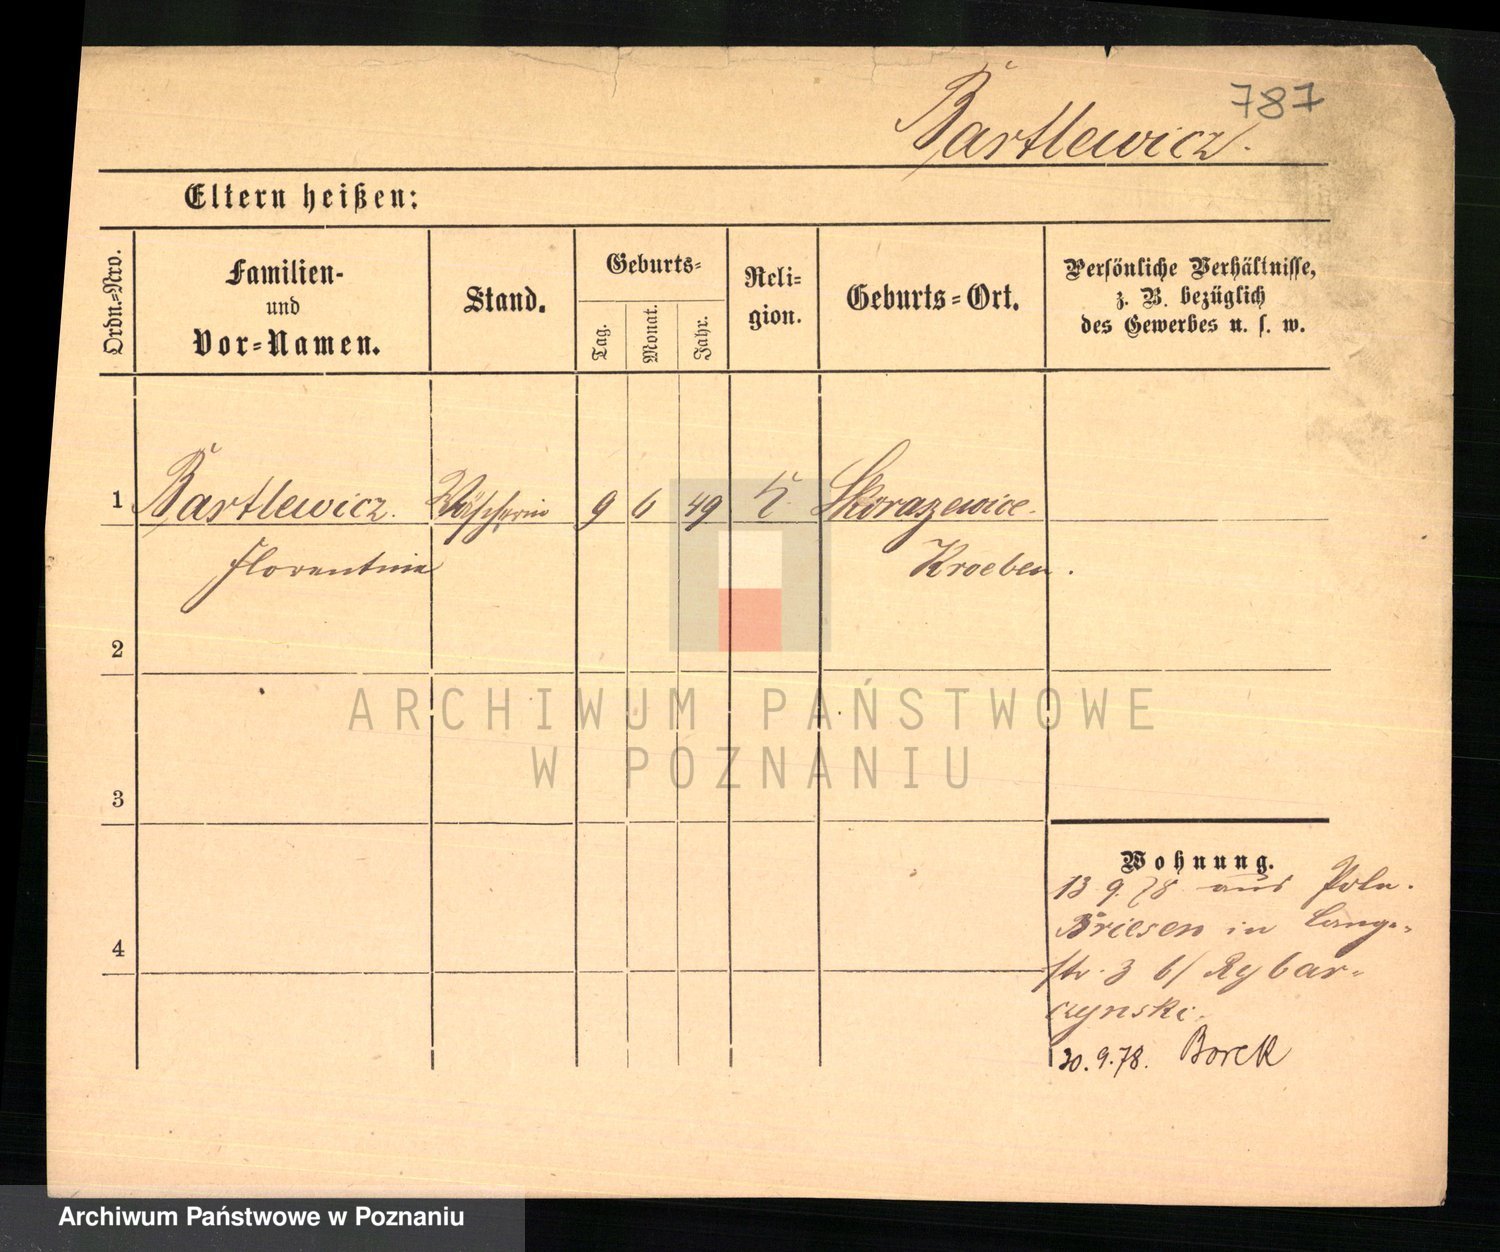 787
Bartlewicz.
Eltern heißen:
Ordn.-Nro.
Familien-
und
Vor-Namen.
Stand.
Geburts-
Tag.
Monat.
Jahr.
Reli-
gion.
Geburts-Ort.
Persönliche Verhältnisse,
z. B. bezüglich
des Gewerbes u. s. w.
1 Bartlewicz. Wäscherin 9 6 49 K. Skoraszewice.
Florentine Kroeben.
2
ARCHIWUM PAŃSTWOWE
W POZNANIU
3
Wohnung.
13 9. 78 aus Poln.
Briesen in Lange-
4
str. 3 b/ Rybar-
czynski.
30.9.78. Borek
Archiwum Państwowe w Poznaniu